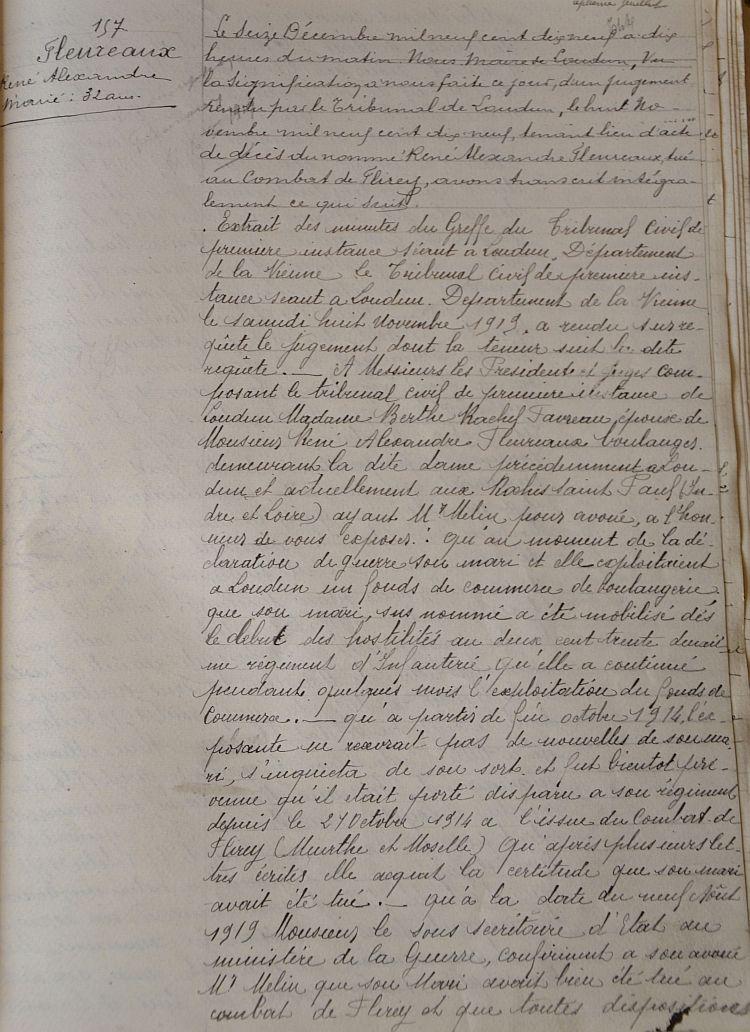 157
Fleureaux
René Alexandre
Marié: 32 ans.
Le seize Décembre mil neuf cent dix neuf à dix
heures du matin Nous Maire de Loudun, Vu
la signification à nous faite ce jour, d'un jugement
rendu par le Tribunal de Loudun, le huit No-
vembre mil neuf cent dix neuf, tenant lieu d'acte
de décès du nommé René Alexandre Fleureaux, tué
au Combat de Flirey, avons transcrit intégra-
lement ce qui suit.
. Extrait des minutes du Greffe du Tribunal Civil de
première instance séant à Loudun, Département
de la Vienne Le Tribunal Civil de première ins-
tance séant à Loudun. Département de la Vienne
le samedi huit Novembre 1919, a rendu sur re-
quête le jugement dont la teneur suit la dite
requête. — A Messieurs les Président et juges com-
posant le tribunal civil de première instance de
Loudun Madame Berthe Rachel Favreau, épouse de
Monsieur René Alexandre Fleureaux boulanger.
demeurant la dite dame précédemment à Lou-
dun et actuellement aux Roches Saint Paul (In-
dre et Loire) ayant Mr Melin pour avoué, a l'hon-
neur de vous exposer: Qu'au moment de la dé-
claration de guerre son mari et elle exploitaient
à Loudun un fonds de commerce de boulangerie
que son mari, sus nommé a été mobilisé dès
le début des hostilités au deux cent trente deuxiè-
me régiment d'Infanterie qu'elle a continué
pendant quelques mois l'exploitation du fonds de
Commerce. — qu'à partir de fin octobre 1914, l'ex-
posante ne recevrait pas de nouvelles de son ma-
ri, s'inquiéta de son sort et fut bientôt pré-
venue qu'il était porté disparu à son régiment
depuis le 27 Octobre 1914 à l'issue du Combat de
Flirey (Meurthe et Moselle) Qu'après plusieurs let-
tres écrites elle acquit la certitude que son mari
avait été tué. — qu'à la date du neuf Août
1919 Monsieur le sous secrétaire d'Etat au
ministère de la Guerre, confirment a son avoué
Mr Melin que son Mari avait bien été tué au
combat de Flirey et que toutes dispositions